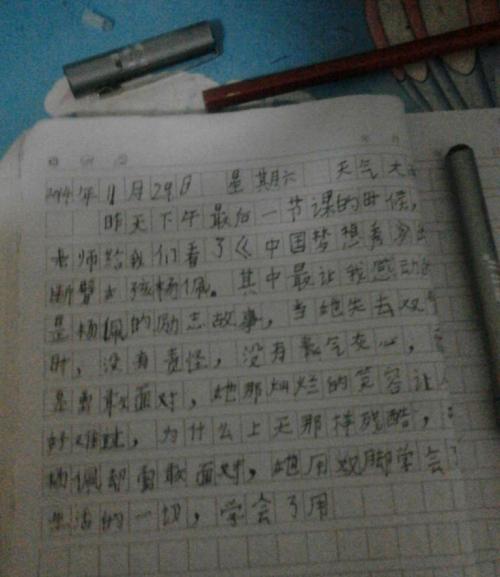 2014年 11月29日 星期六 天气
昨天下午最后一节课的时候,
老师给我们看了《中国梦想秀
断臂女孩杨佩。其中最让我感动的
是杨佩的励志故事,当她失去双
时,没有责怪,没有灰心,
是勇敢面对,她那灿烂的笑容让
好难过,为什么上天那样残酷,
杨佩却勇敢面对,她用双脚学会
生活的一切,学会了用